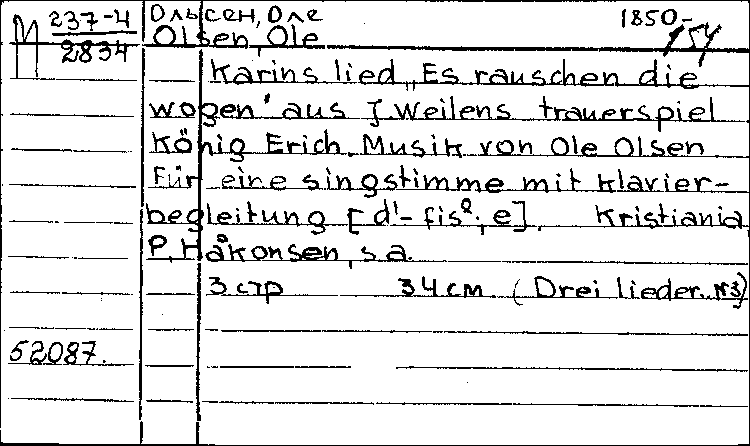 М 237-4
2834
Ольсен, Оле 1850-
Olsen, Ole
Karins lied „Es rauschen die
wogen" aus J. Weilens trauerspiel
König Erich. Musik von Ole Olsen
Für eine singstimme mit klavier-
begleitung [d¹- fis²; e]. Kristiania,
P. Håkonsen, s.a.
3 стр 34 см. (Drei lieder. №3)
52087.